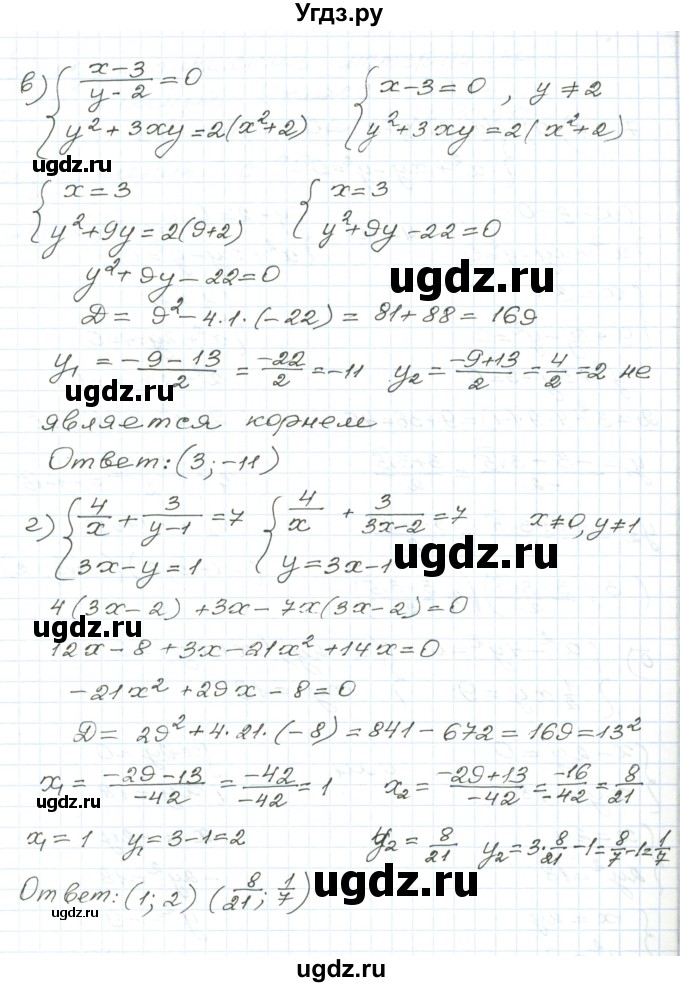 Угдз.ру
в) { (x-3)/(y-2) = 0   { x-3=0, y≠2
{ y²+3xy=2(x²+2)   { y²+3xy=2(x²+2)
ugdz.ru
{ x=3   { x=3
{ y²+9y=2(9+2)   { y²+9y-22=0
y²+9y-22=0
ugdz.ru
Д= 9²-4·1·(-22) = 81+88=169
y₁ = (-9-13)/2 = -22/2 = -11   y₂ = (-9+13)/2 = 4/2 = 2 не
ugdz.ru
является корнем
Ответ: (3; -11)
г) { 4/x + 3/(y-1) = 7   { 4/x + 3/(3x-2) = 7   x≠0, y≠1
{ 3x-y=1   { y=3x-1
ugdz.ru
4(3x-2)+3x-7x(3x-2)=0
ugdz.ru
12x-8+3x-21x²+14x=0
-21x²+29x-8=0
Д= 29²+4·21·(-8)=841-672=169=13²
x₁ = (-29-13)/-42 = -42/-42 = 1   x₂ = (-29+13)/-42 = -16/-42 = 8/21
ugdz.ru
x₁=1   y₁=3-1=2   y₂ = 8/21   y₂=3·8/21-1=8/7-1=1/7
Ответ: (1; 2) (8/21; 1/7)
ugdz.ru
ugdz.ru
ugdz.ru